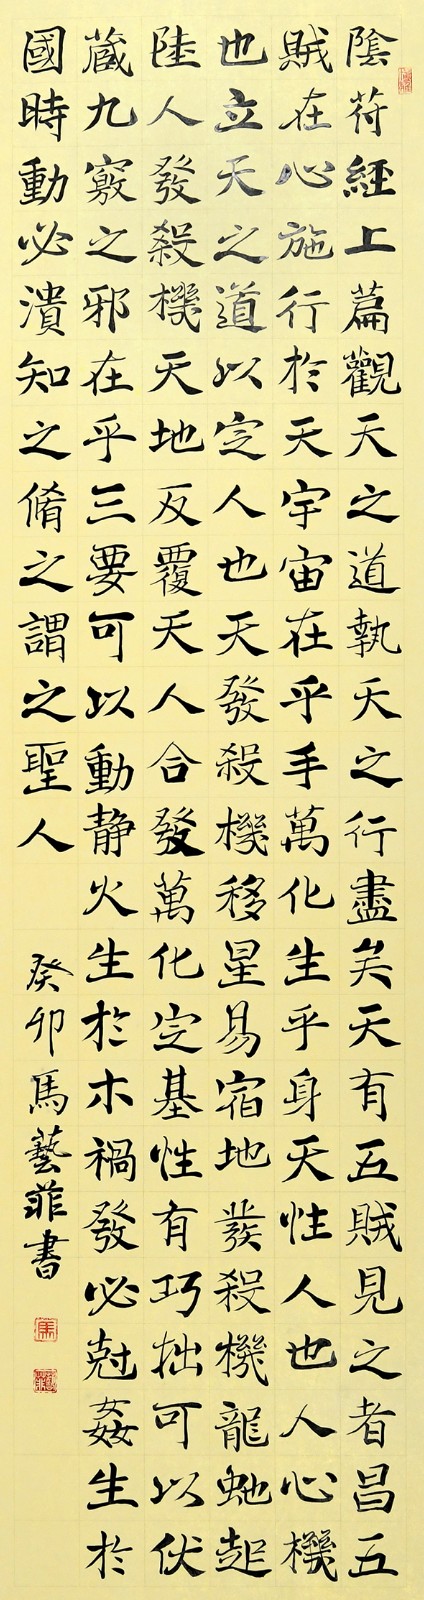 隂苻經上篇觀天之道執天之行盡矣天有五賊見之者昌五
賊在心施行於天宇宙在乎手萬化生乎身天性人也人心機
也立天之道以定人也天發殺機移星易宿地發殺機龍虵起
陸人發殺機天地反覆天人合發萬化定基性有巧拙可以伏
藏九竅之邪在乎三要可以動静火生於木禍發必尅姦生於
國時動必潰知之脩之謂之聖人
癸卯馬藝菲書